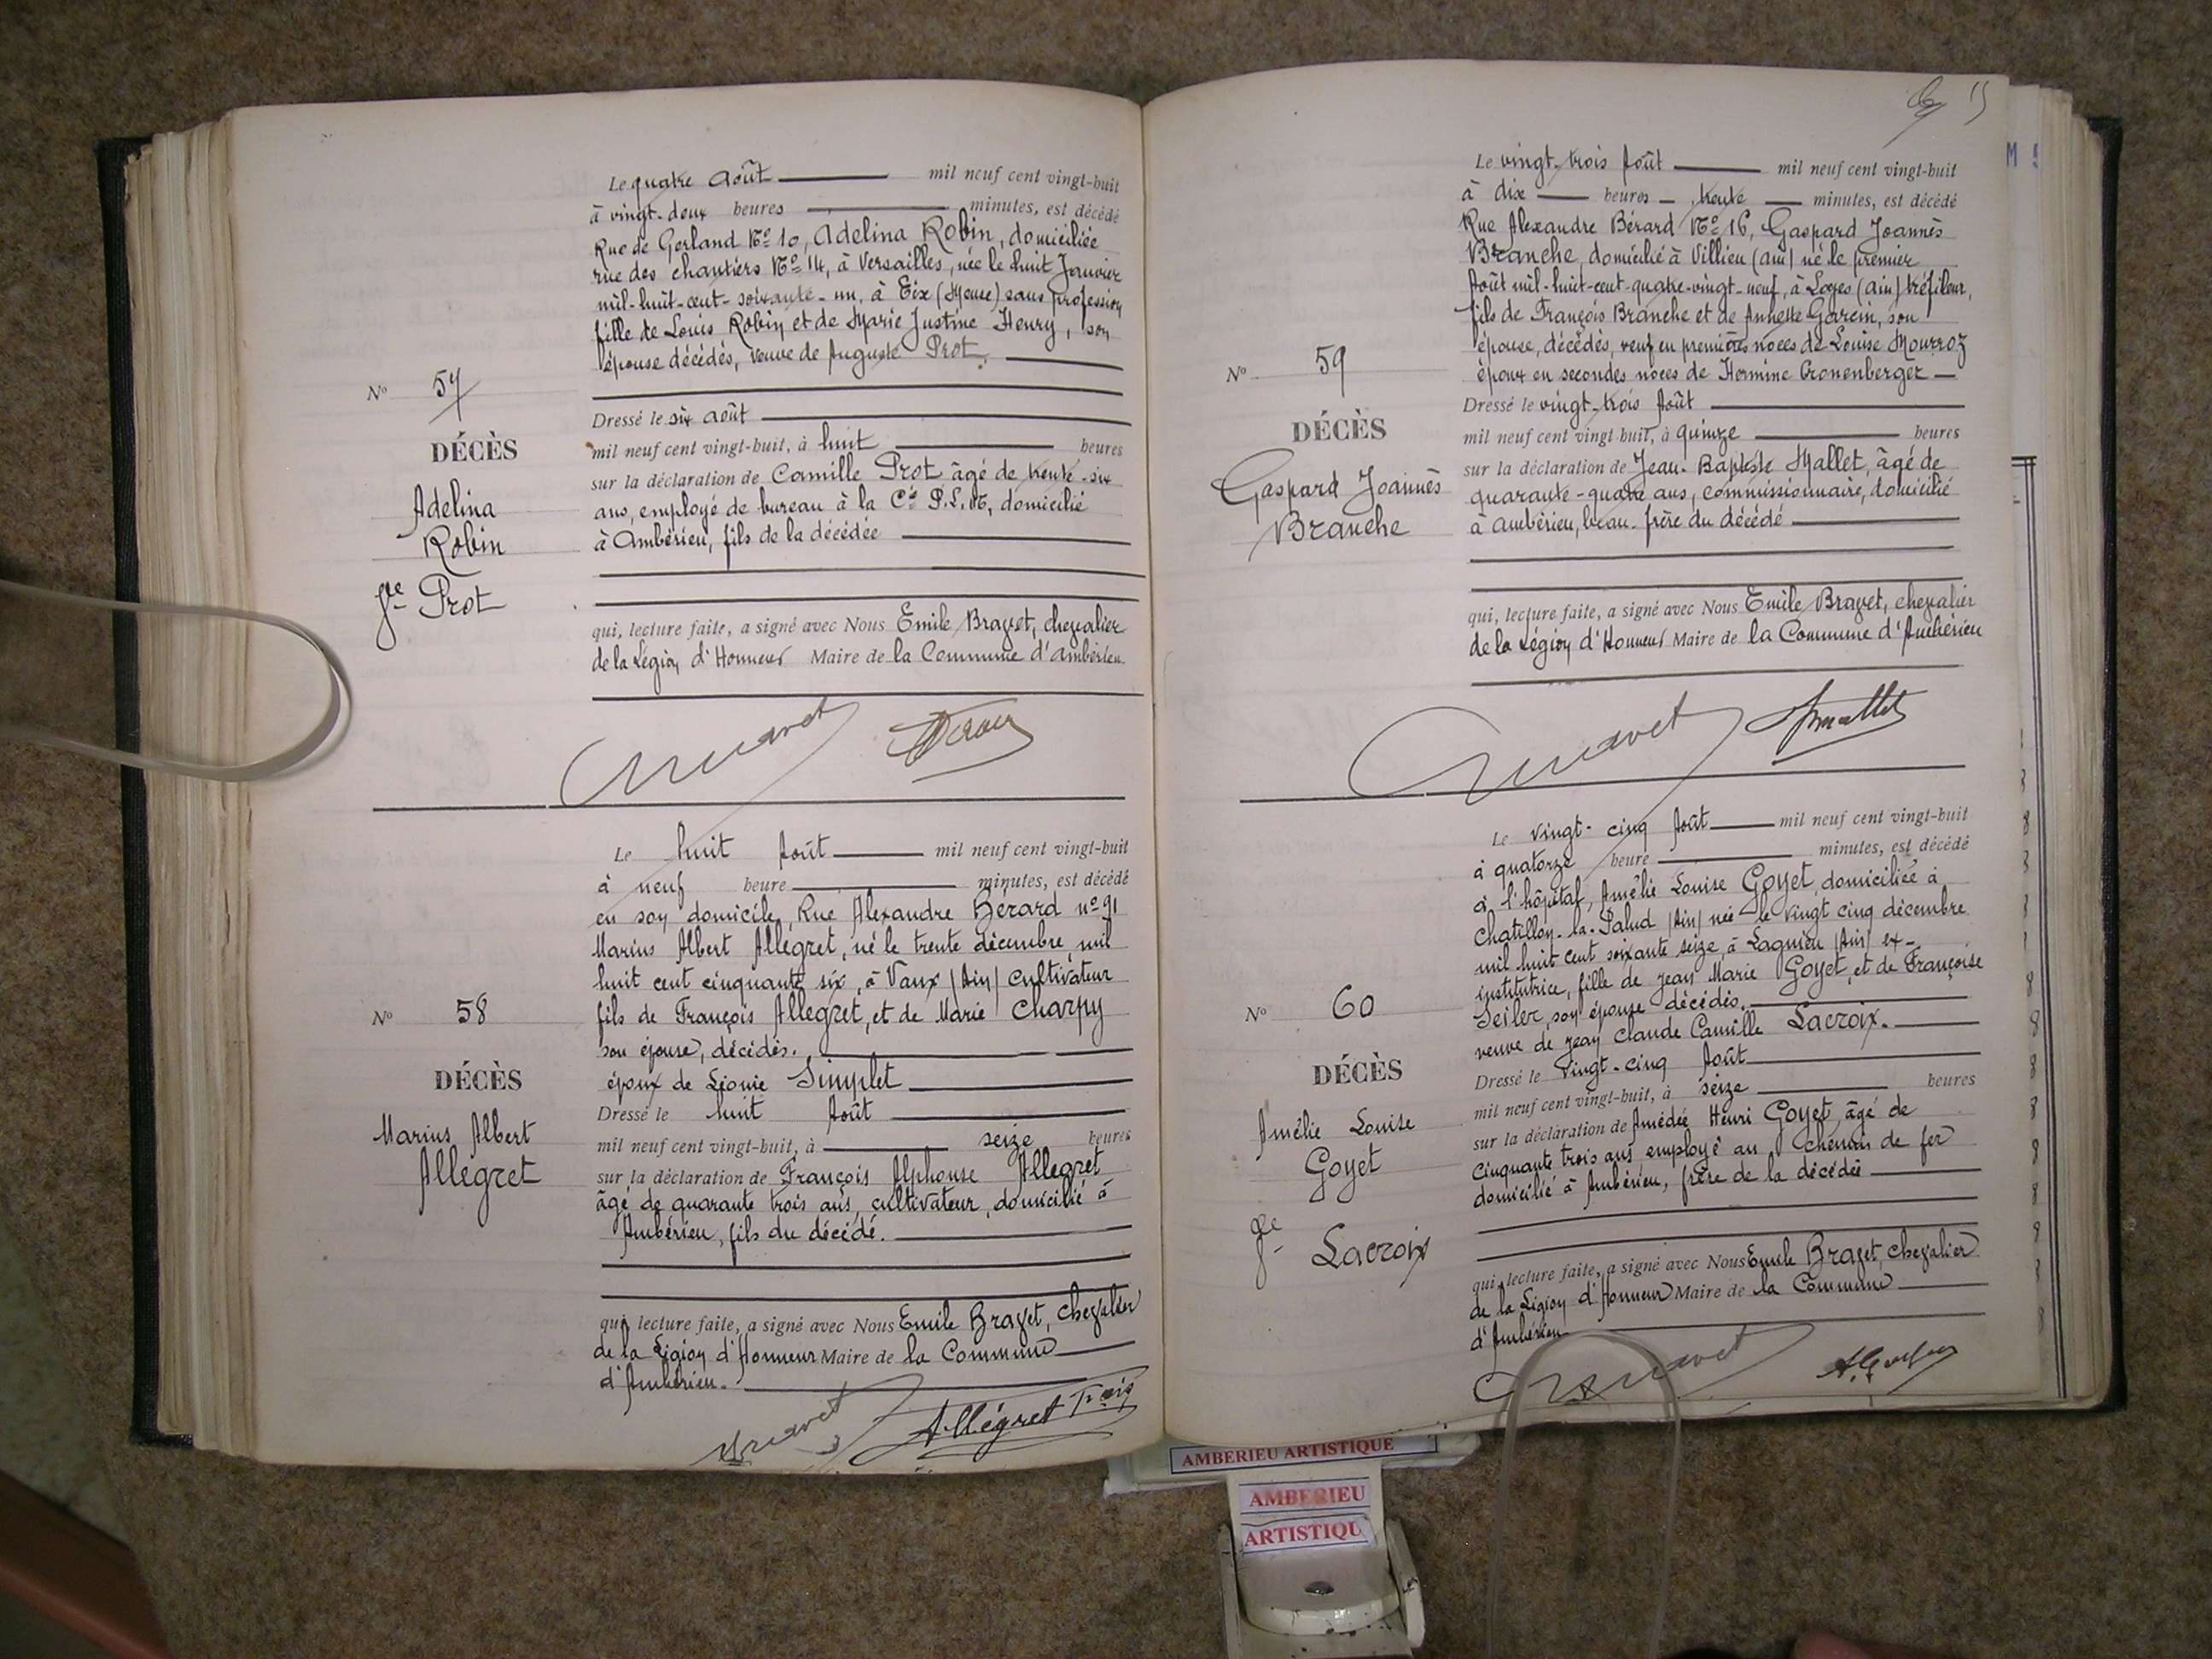 Le quatre Août mil neuf cent vingt-huit
à vingt-deux heures minutes, est décédé
Rue de Gerland No 10, Adelina Robin, domiciliée
rue des chantiers No 14, à Versailles, née le huit Janvier
mil-huit-cent-soixante-un, à Eix (Meuse) sans profession
fille de Louis Robin et de Marie Justine Henry, son
épouse décédés, veuve de Auguste Prot.
No 57
DÉCÈS
Adelina
Robin
Prot
Dressé le six août
mil neuf cent vingt-huit, à huit heures
sur la déclaration de Camille Prot âgé de trente-six
ans, employé de bureau à la Cie P.L.M, domicilié
à Ambérieu, fils de la décédée
qui, lecture faite, a signé avec Nous Emile Bravet, chevalier
de la Légion d'Honneur Maire de la Commune d'Ambérieu.
Bravet
Le huit Août mil neuf cent vingt-huit
à neuf heure minutes, est décédé
en son domicile, Rue Alexandre Bérard no 91
Marius Albert Allegret, né le trente décembre mil
huit cent cinquante six, à Vaux (Ain) cultivateur
fils de François Allegret, et de Marie Charpy
son épouse, décédés.
époux de Léonie Simplet
No 58
DÉCÈS
Marius Albert
Allegret
Dressé le huit Août
mil neuf cent vingt-huit, à seize heures
sur la déclaration de François Alphonse Allegret
âgé de quarante trois ans, cultivateur, domicilié à
Ambérieu, fils du décédé.
qui, lecture faite, a signé avec Nous Emile Bravet, Chevalier
de la Légion d'Honneur Maire de la Commune
d'Ambérieu.
Bravet Allégret Fçois
Le vingt-trois Août mil neuf cent vingt-huit
à dix heures trente minutes, est décédé
Rue Alexandre Bérard No 16, Gaspard Joannès
Branche, domicilié à Villieu (Ain) né le premier
Août mil-huit-cent-quatre-vingt-neuf, à Loyes (Ain) tréfileur,
fils de François Branche et de Annette Garcin, son
épouse, décédés, veuf en premières noces de Louise Mourroz
époux en secondes noces de Hermine Cronenberger
No 59
DÉCÈS
Gaspard Joannès
Branche
Dressé le vingt-trois Août
mil neuf cent vingt-huit, à quinze heures
sur la déclaration de Jean-Baptiste Mallet, âgé de
quarante-quatre ans, commissionnaire, domicilié
à Ambérieu, beau-frère du décédé
qui, lecture faite, a signé avec Nous Emile Bravet, chevalier
de la Légion d'Honneur Maire de la Commune d'Ambérieu
Bravet Mallet
Le vingt-cinq Août mil neuf cent vingt-huit
à quatorze heure minutes, est décédé
à l'hôpital, Amélie Louise Goyet, domiciliée à
Chatillon-la-Palud (Ain) née le vingt cinq décembre
mil huit cent soixante seize, à Lagnieu (Ain) ex-
institutrice, fille de Jean Marie Goyet, et de Françoise
Seiler, son épouse décédés.
veuve de Jean Claude Camille Lacroix.
No 60
DÉCÈS
Amélie Louise
Goyet
Lacroix
Dressé le vingt-cinq Août
mil neuf cent vingt-huit, à seize heures
sur la déclaration de Amédée Henri Goyet, âgé de
cinquante trois ans employé au chemin de fer
domicilié à Ambérieu, frère de la décédée
qui, lecture faite, a signé avec Nous Emile Bravet, Chevalier
de la Légion d'Honneur Maire de la Commune
d'Ambérieu
Bravet
AMBERIEU ARTISTIQUE
AMBERIEU
ARTISTIQU